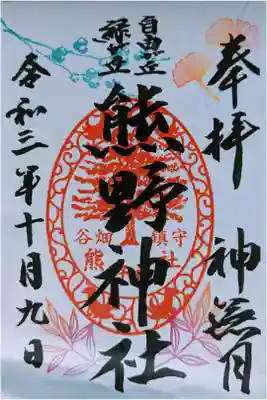 奉拝
神無月
自由が丘
緑が丘
熊野神社
谷畑 鎮守
熊 社
令和三年十月九日